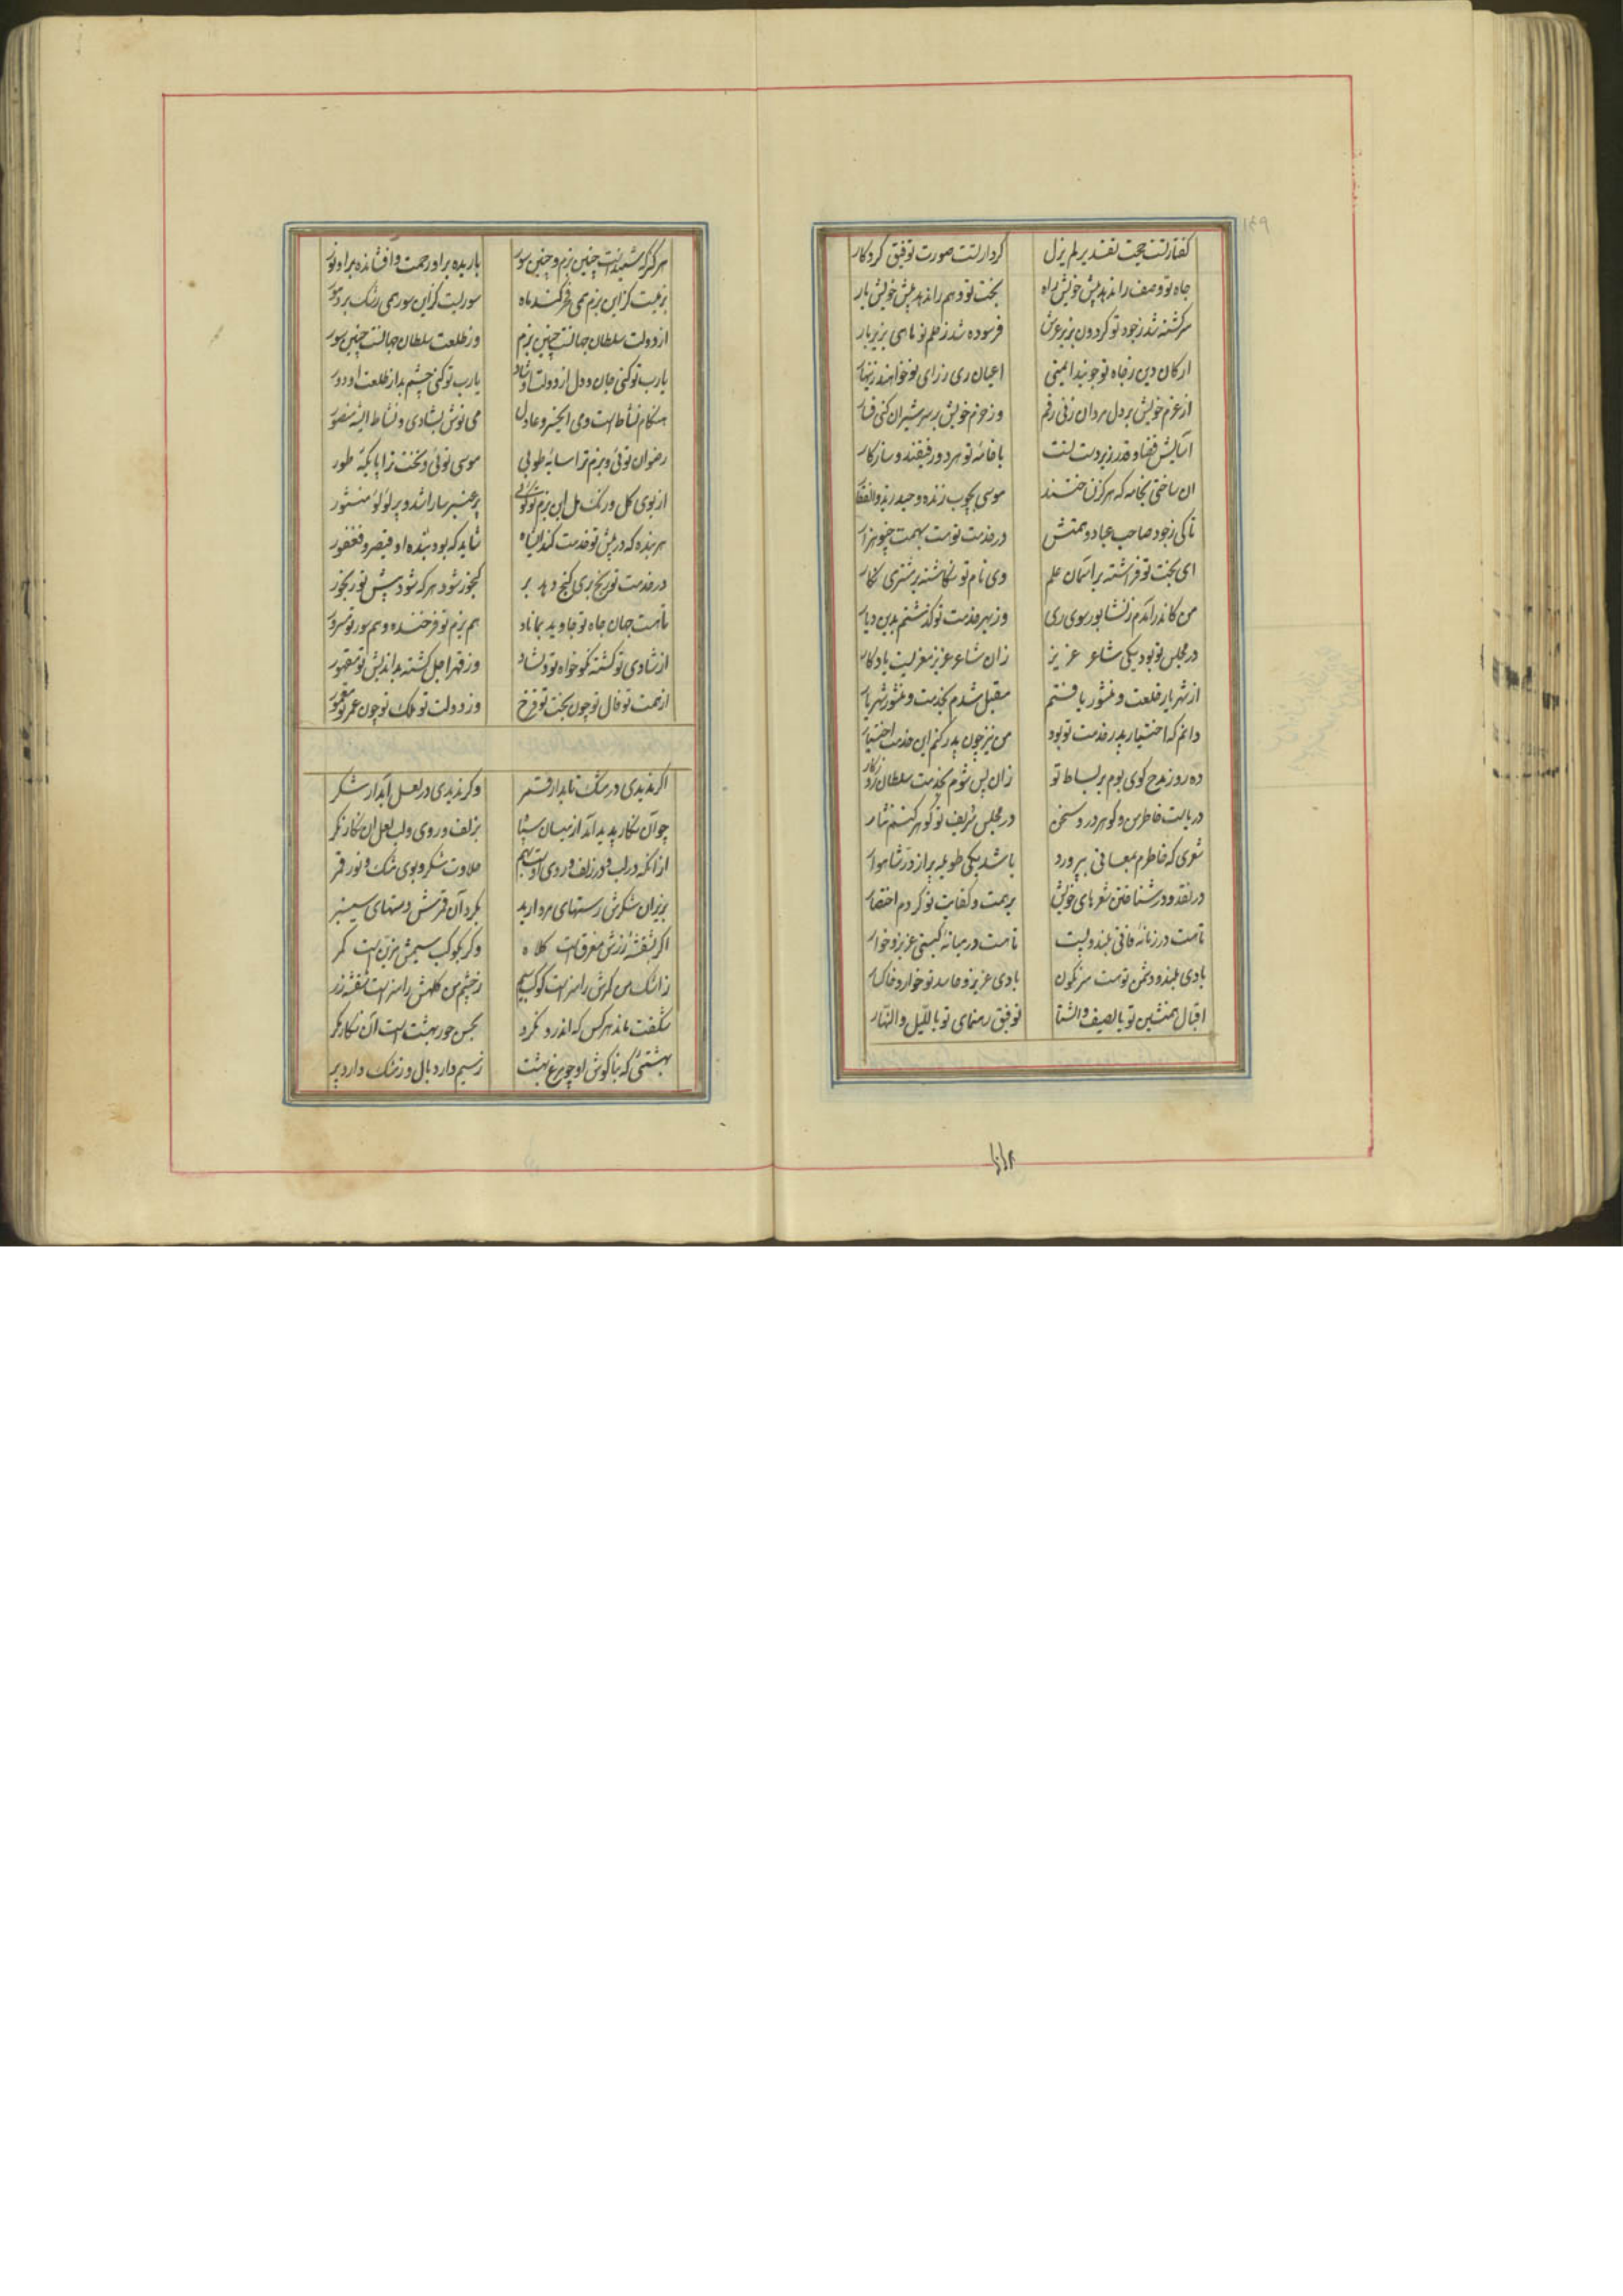 ۱۴۹
گفتار تست حجت تقدیر لم یزل کردار تست صورت توفیق کردکار
جاه تو وصف را ندهد پیش خویش راه بخت تو وهم را ندهد پیش خویش بار
سرکشته شد ز جود تو کردون بزیر عرش فرسوده شد ز حلم تو ماهی بزیر بار
ارکان دین ز جاه تو جویند ایمنی اعیان ری ز رای تو خواهند زینهار
از عزم خویش بر دل مردان زنی رقم وز حزم خویش بر سر شیران کنی فسار
آسایش قضا و قدر زیر دست تست با خامه تو هر دو رفیقند و سازکار
آن ساختی بخامه که هرکز نساختند موسی بچوب زنده و حیدر بذوالفقار
تا کی ز جود صاحب عباد و همتش در خدمت تو هست بهمت چو او هزار
ای بخت تو فراشته بر آسمان علم وی نام تو نکاشته بر مشتری نکار
من کاندر آمدم ز نشابور سوی ری وز بهر خدمت تو کذشتم بدین دیار
در مجلس تو بود یکی شاعر عزیز زان شاعر عزیز معزیست یادکار
از شهریار خلعت و منشور یافتم مقبل شدم بخدمت و منشور شهریار
دانم که اختیار پدر خدمت تو بود من نیز چون پدر کنم این خدمت اختیار
ده روز مدح کوی بوم بر بساط تو زان پس شوم بخدمت سلطان روزکار
دریاست خاطر من و کوهر درو سخن در مجلس شریف تو کوهر کنم نثار
شعری که خاطرم بمعانی بپرورد باشد یکی طویله پر از در شاهوار
در نقد و در شناختن شعرهای خویش بر همت و کفایت تو کردم اختصار
تا هست در زمانه فانی بلند و پست تا هست در میانه کیتی عزیز و خوار
بادی بلند و دشمن تو پست سرنکون بادی عزیز و حاسد تو خوار و خاکسار
اقبال همنشین تو بالصیف والشتا توفیق رهنمای تو باللیل والنهار
هرکز که شنیدست چنین بزم و چنین سور باریده بر او رحمت و افشانده بر او نور
بزمیست کز این بزم همی فخر کند ماه سوریست کز این سور همی رشک برد حور
از دولت سلطان جهانست چنین بزم وز طلعت سلطان جهانست چنین سور
یارب تو کنی جان و دل از دولت او شاد یارب تو کنی چشم بد از طلعت او دور
هنکام نشاط است و می ای خسرو عادل می نوش بشادی و نشاط ای شه منصور
رضوان توئی و بزم ترا سایه طوبی موسی توئی و تخت ترا پایکه طور
از بوی کل و رنک مل این بزم تو کوئی پر عنبر سارا شد و پر لؤلؤ منثور
هر بنده که در پیش تو خدمت کند ای شاه شاید که بود بنده او قیصر و فغفور
در خدمت تو رنج بری کنج دهد بر کنجور شود هر که شود پیش تو رنجور
تا هست جهان جاه تو جاوید بماناد هم بزم تو فرخنده و هم سور تو مسرور
از شادی تو کشته نکوخواه تو دلشاد وز قهر اجل کشته بداندیش تو مقهور
از همت تو فال تو چون بخت تو فرخ وز دولت تو ملک تو چون عمر تو معمور
اکر ندیدی در مشک تابدار قمر وکر ندیدی در لعل آبدار شکر
چو آن نکار پدید آید از میان سپاه بزلف و روی و لب لعل آن نکار نکر
از آنکه در لب و در زلف و روی اوست بهم حلاوت شکر و بوی مشک و نور قمر
بزیر آن شکرش رستهای مروارید بکرد آن قمرش دستهای سیسنبر
اکر بنقشه زرش مغرق است کلاه وکر بکوکب سیمش مزین است کمر
ز اشک من کمرش را مزیست کوکب سیم ز چشم من کلهش را مزیست نقشه زر
شکفت ماند هر کس که اندرو نکرد بحسن حور بهشت است آن نکار نکر
بهشتئی که بناکوش او چو مرغ بهشت ز سیم دارد بال و ز مشک دارد پر